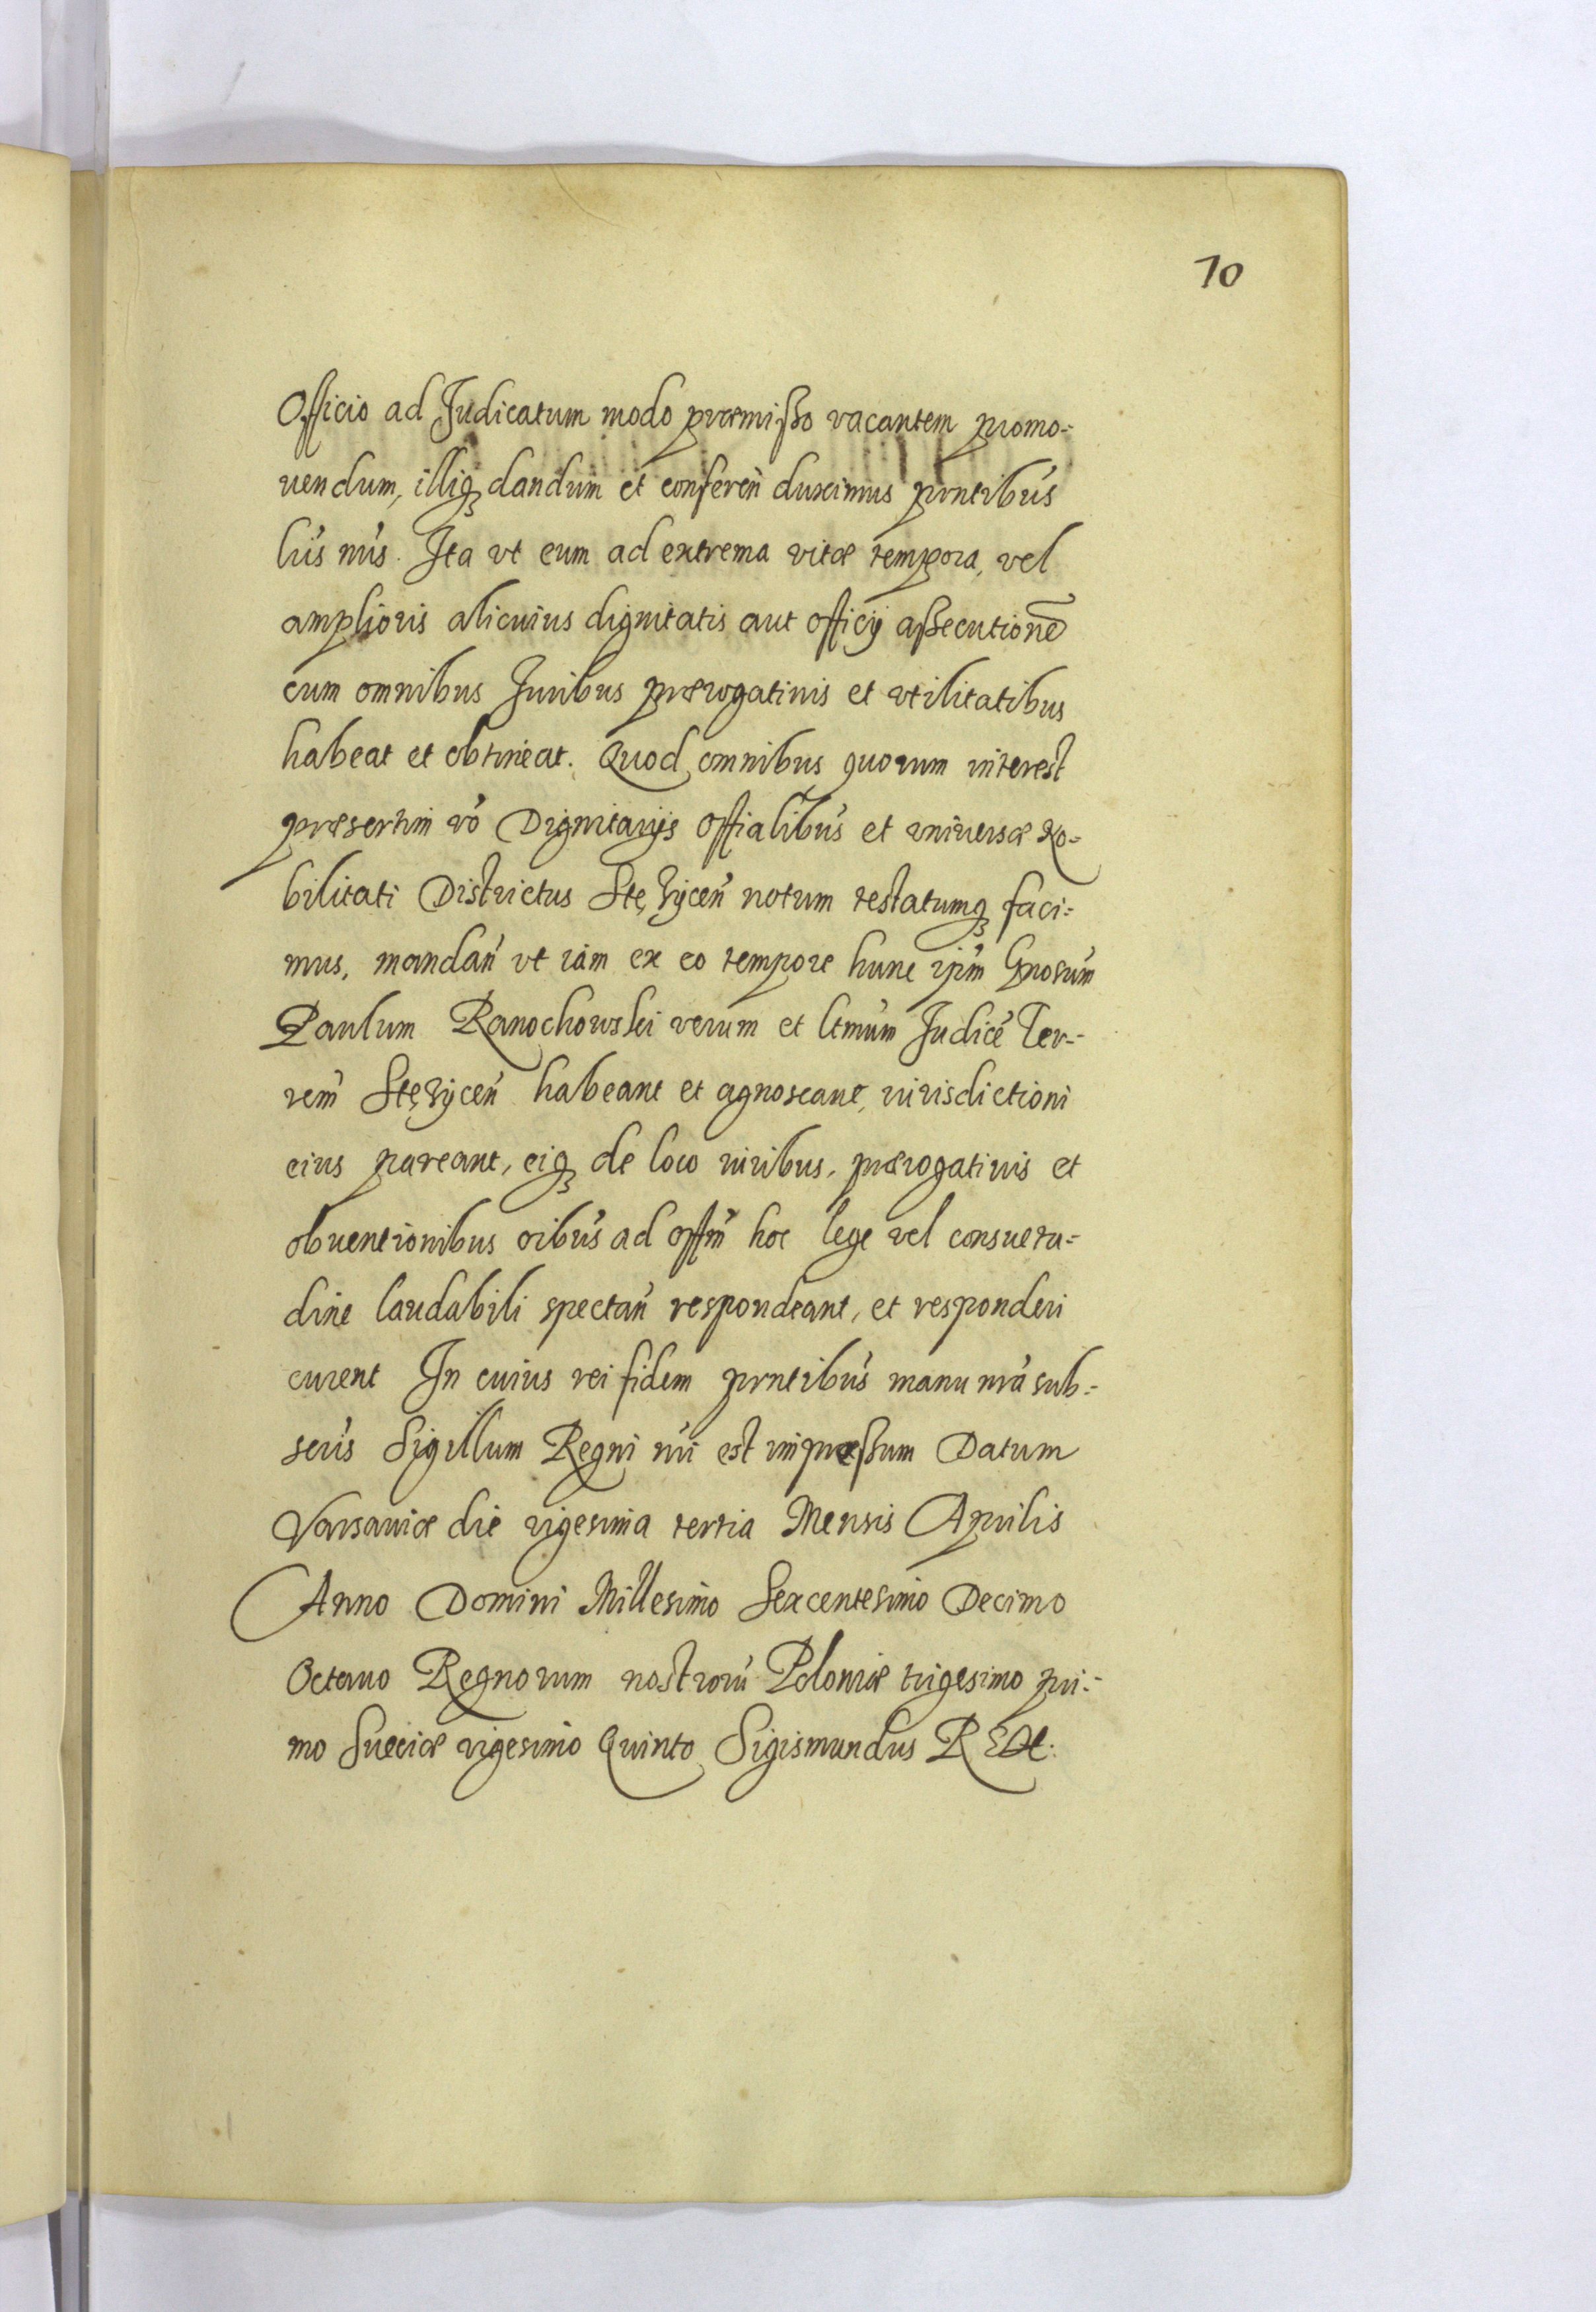 70
Officio ad Judicatum modo præmißo vacantem promo=
uendum, illiq₃ dandum et confereń duximus pnntibús
lrís nrís. Ita vt eum ad extrema vitæ tempora, vel
amplioris alicuius dignitatis aut officij aßecutionē
cum omnibus Juribus prærogatiuis et vtilitatibus
habeat et obtineat. Quod omnibus quorum interest
præsertim vó Dignitarijs Offialibús et vniuersæ No=
bilitati Districtus Stężyceń notum testatumq₃ faci=
mus, mandań vt iam ex eo tempore hunc ipḿ Gnosúm
Paulum Ranochowski verum et ltmúm Judicé Ter=
reń Stężyceń habeant et agnoscant, iurisdictioni
eius pareant, eiq₃ de loco iuribus, prærogatiuis et
obuentionibus oibús ad offḿ hoc lege vel consuetu=
dine laudabili spectań respondeant, et responderi
curent In cuius rei fidem pnntibús manu nrá sub=
scrís Sigillum Regni nrí est impræßum Datum
Varsauiæ die vigesima tertia Mensis Aprilis
Anno Domini Millesimo Sexcentesimo Decimo
Octauo Regnorum nostrorú Poloniæ trigesimo pri=
mo Sueciæ vigesimo Quinto Sigismundus REX.